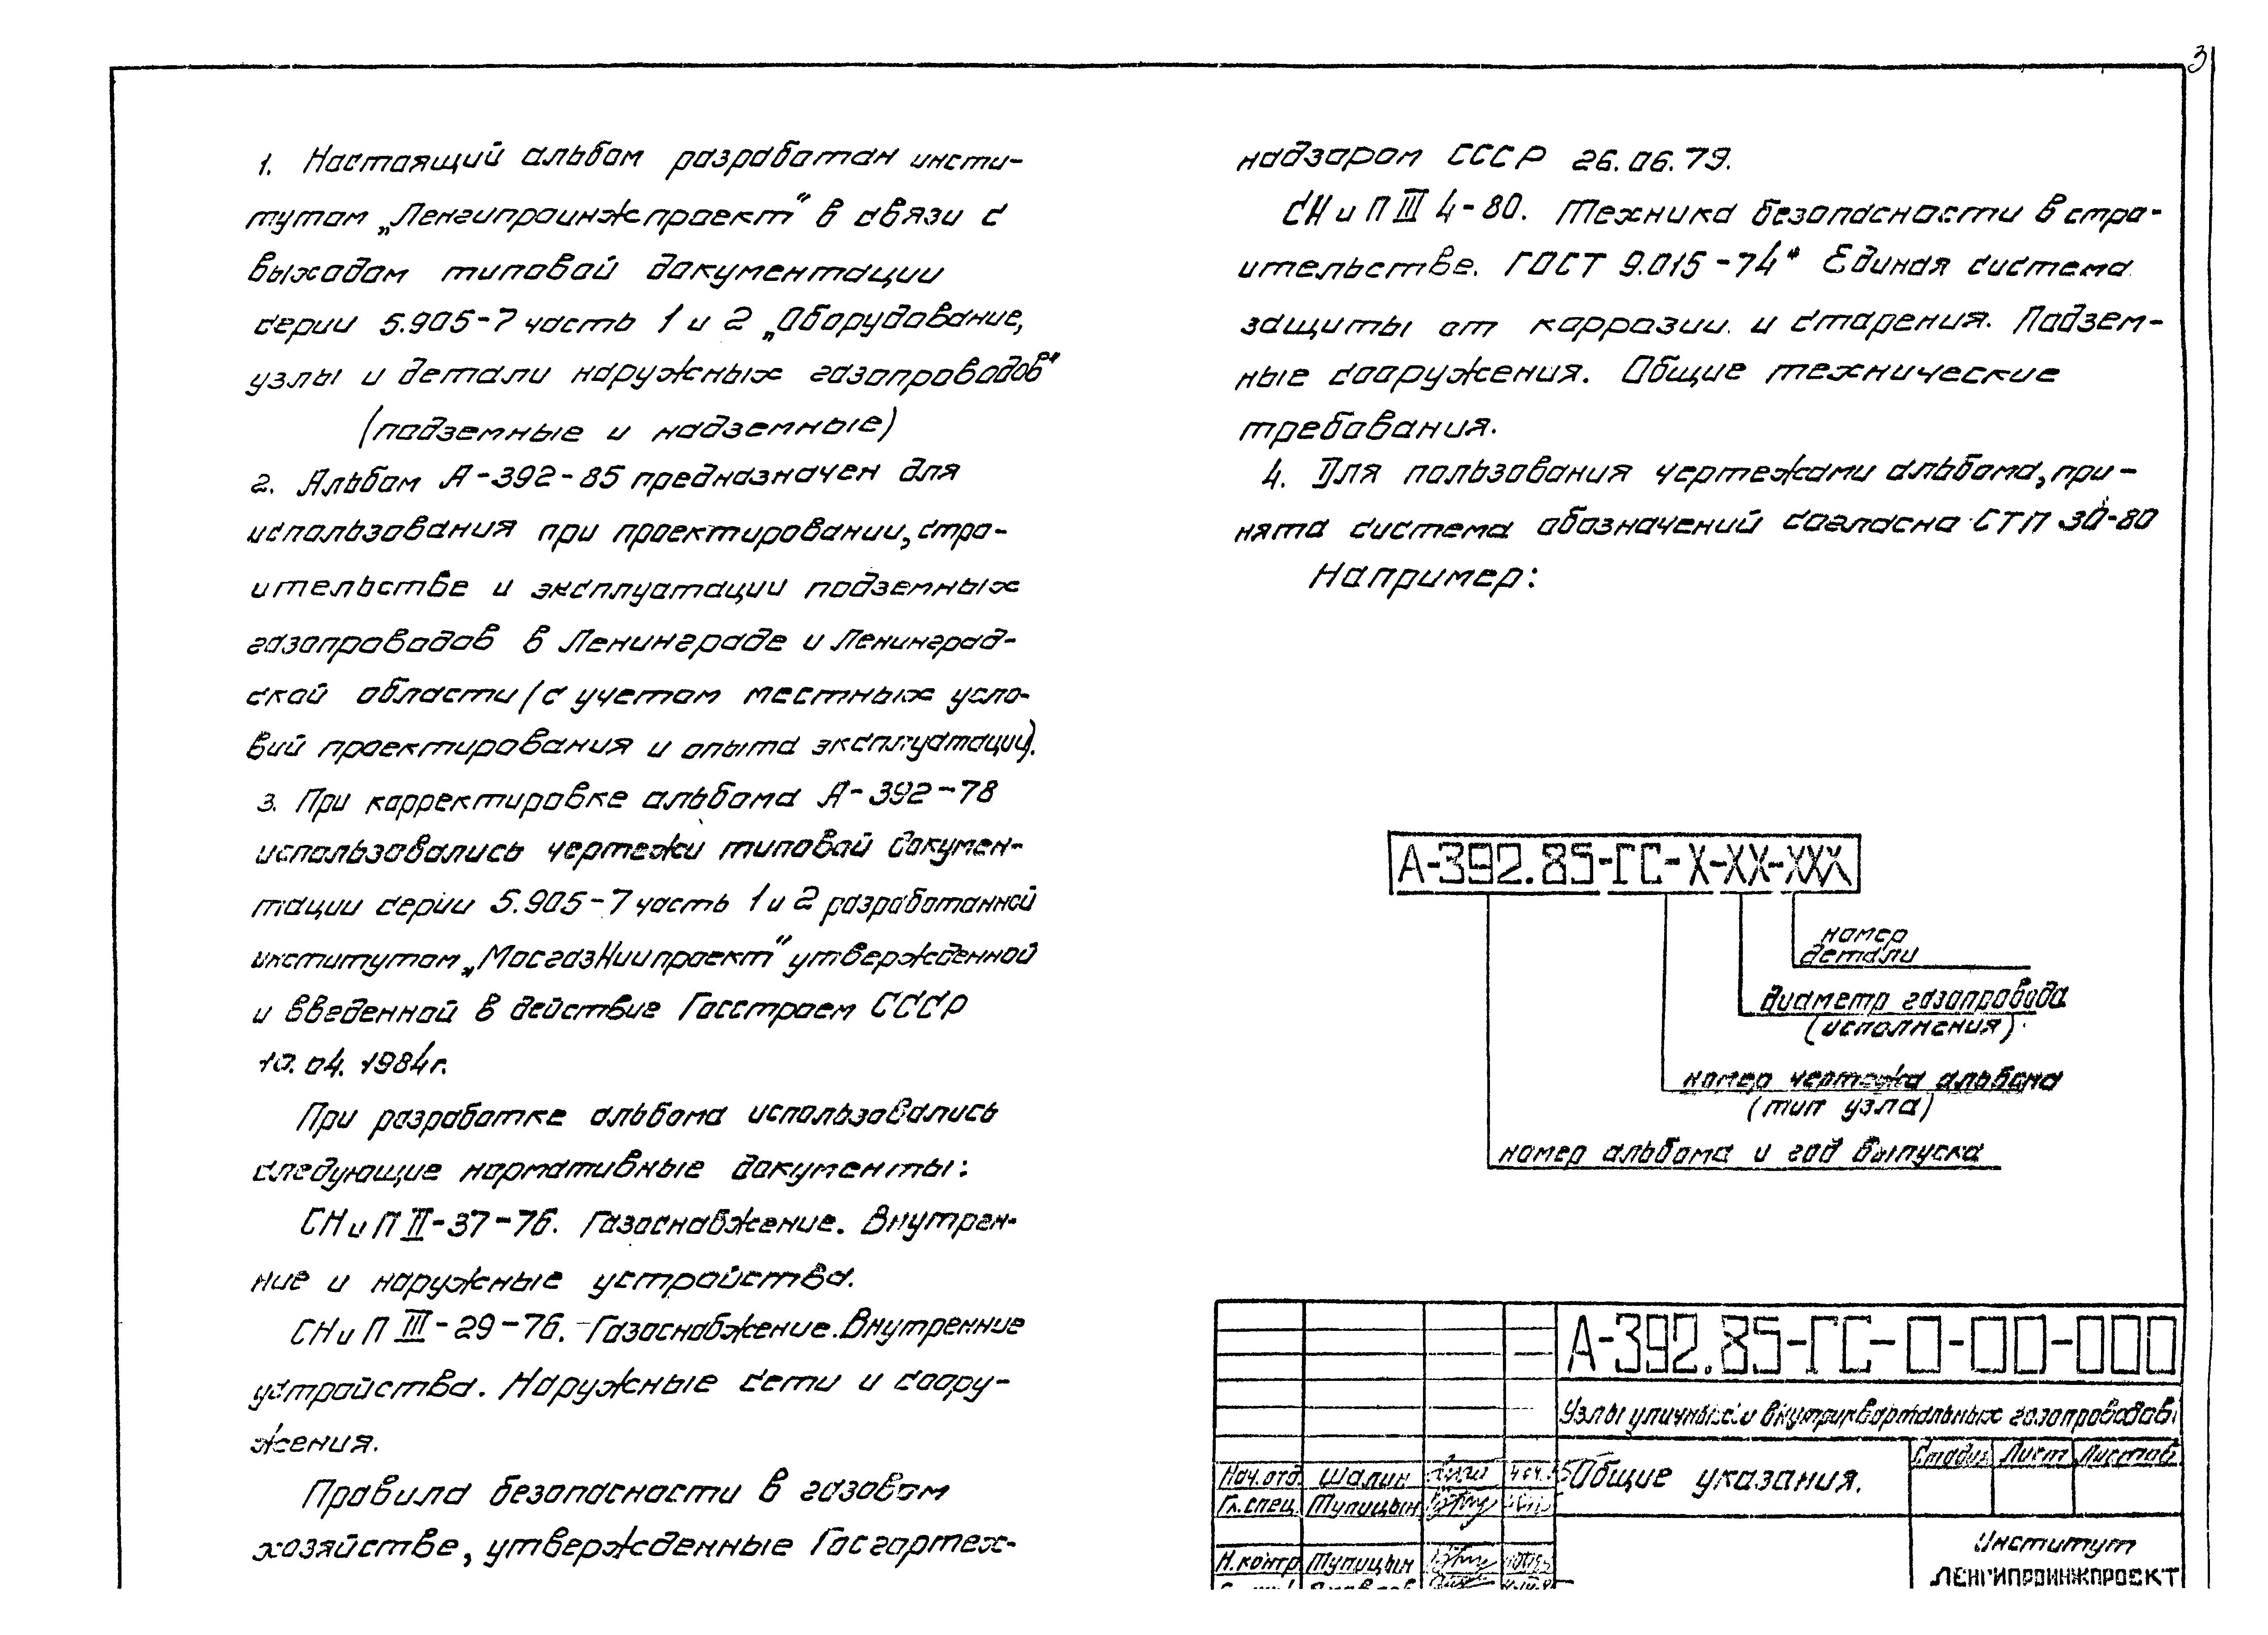 3
1. Настоящий альбом разработан инсти-
тутом „Ленгипроинжпроект“ в связи с
выходом типовой документации
серии 5.905-7 часть 1 и 2 „Оборудование,
узлы и детали наружных газопроводов“
(подземные и надземные)
2. Альбом А-392-85 предназначен для
использования при проектировании, стро-
ительстве и эксплуатации подземных
газопроводов в Ленинграде и Ленинград-
ской области /с учетом местных усло-
вий проектирования и опыта эксплуатации).
3. При корректировке альбома А-392-78
использовались чертежи типовой докумен-
тации серии 5.905-7 часть 1 и 2 разработанной
институтом „МосгазНиипроект“ утвержденной
и введенной в действие Госстроем СССР
10.04.1984г.
При разработке альбома использовались
следующие нормативные документы:
СНиП II-37-76. Газоснабжение. Внутрен-
ние и наружные устройства.
СНиП III-29-76. Газоснабжение. Внутренние
устройства. Наружные сети и соору-
жения.
Правила безопасности в газовом
хозяйстве, утвержденные Госгортех-
надзором СССР 26.06.79.
СНиП III 4-80. Техника безопасности в стро-
ительстве. ГОСТ 9.015-74* Единая система
защиты от коррозии и старения. Подзем-
ные сооружения. Общие технические
требования.
4. Для пользования чертежами альбома, при-
нята система обозначений согласно СТП 30-80
Например:
А-392.85-ГС-Х-ХХ-ХХХ
номер
детали
диаметр газопровода
(исполнения)
номер чертежа альбома
(тип узла)
номер альбома и год выпуска
А-392.85-ГС-0-00-000
Узлы уличных и внутриквартальных газопроводов
Стадия Лист Листов
Нач.отд. Шалин
Общие указания.
Гл.спец. Тупицын
Институт
Н.контр Тупицын
ЛЕНГИПРОИНЖПРОЕКТ